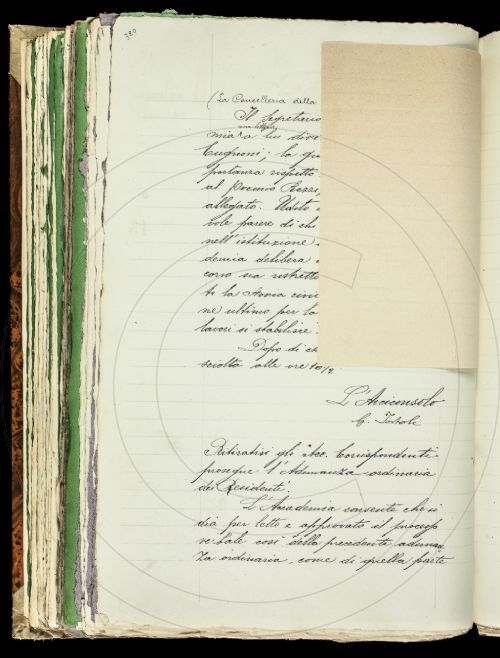 380
(La Cancelleria della
Il segretario
una lettera
mia a lui dire
Cugnoni; la qu
portanza rispetto
al Premio Rezzi,
allegato. Udito
vole parere di chi
nell'istituzione
demia delibera
corso sia ristretto
ti la storia
ne ultimo per lo
lavori si stabilisce
Dopo di
sciolta alle ore 10 1/2
L'Arciconsolo
Ritiratisi gli Acc. Corrispondenti
prosegue l'Adunanza ordinaria
dei Residenti.
L'Accademia consente che si
dia per letto e approvato il process
verbale così della precedente adunan
za ordinaria, come di quella parte